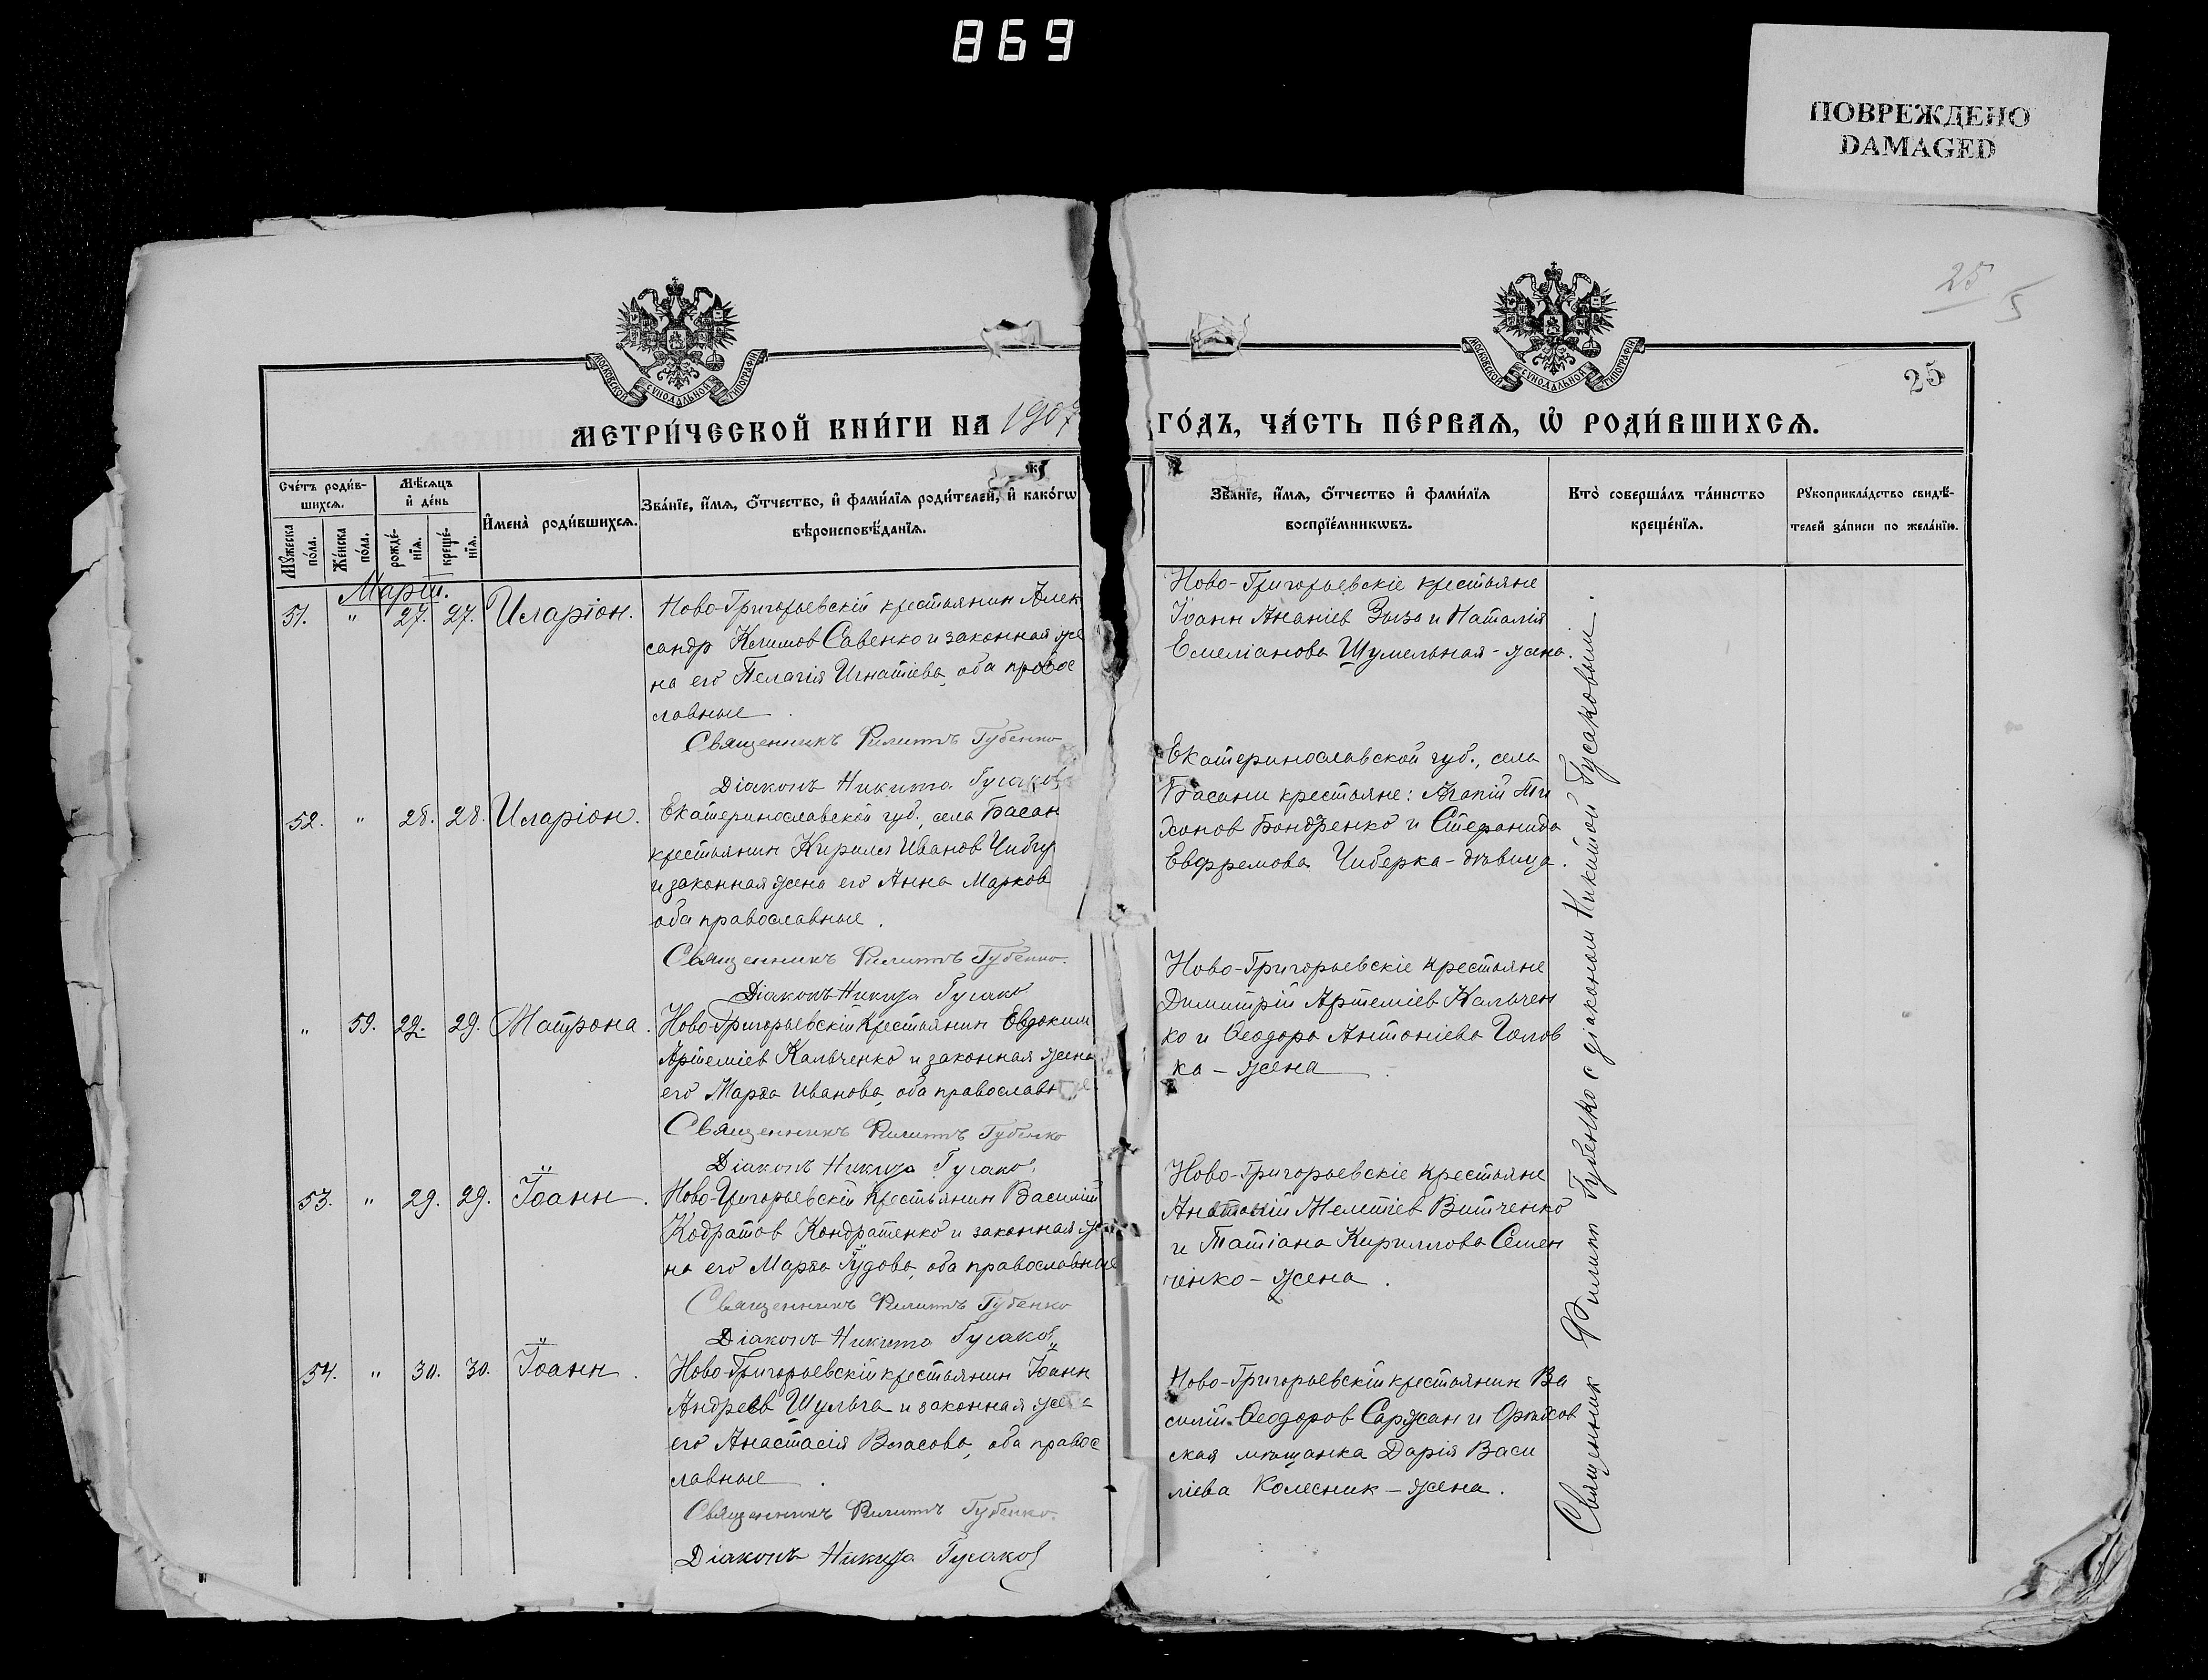 869
ПОВРЕЖДЕНО
DAMAGED
25
5
25
МОСКОВСКОЙ СѴНОДАЛЬНОЙ ТИПОГРАФІИ
МОСКОВСКОЙ СѴНОДАЛЬНОЙ ТИПОГРАФІИ
МЕТРИ́ЧЕСКОЙ КНИ́ГИ НА 1907 ГО́ДЪ, ЧА́СТЬ ПЕ́РВАѦ, Ѡ҆ РОДИ́ВШИХСѦ.
Сче́тъ роди́в-
шихсѧ.
Мꙋ́жеска по́ла.
Же́нска по́ла.
Мѣ́сѧцъ и҆ де́нь
рожде́-
нїѧ.
креще́-
нїѧ.
И҆мена̀ роди́вшихсѧ.
Зва́нїе, и҆́мѧ, ѻ҆́тчество, и҆ фами́лїѧ роди́телей, и҆ како́гѡ
вѣроисповѣ́данїѧ.
Зва́нїе, и҆́мѧ, ѻ҆́тчество и҆ фами́лїѧ
воспрїе́мникѡвъ.
Кто̀ соверша́лъ та́инство
креще́нїѧ.
Рꙋкоприкла́дство свидѣ́-
телей за́писи по жела́нїю.
Март.
51. " 27. 27. Иларіон.
Ново-Григорьевскій крестьянин Алек
сандр Климов Савенко и законная же
на его Пелагія Игнатіева, оба правос
лавные.
Священникъ Филиппъ Губенко
Діаконъ Никита Гусаков
Ново-Григорьевскіе крестьяне
Іоанн Ананіев Зыза и Наталія
Емеліанова Шумельная - жена.
52. " 28. 28. Иларіон.
Екатеринославской губ., села Басан
крестьянин Кирилл Иванов Чибир
и законная жена его Анна Марков
оба православные.
Священникъ Филиппъ Губенко.
Діаконъ Никита Гусако
Екатеринославской губ., села
Басани крестьяне: Агапій Ти
хонов Бондренко и Стефанида
Евфремова Чиберка - дѣвица.
" 59. 29. 29. Матрона.
Ново-Григорьевскій крестьянин Евдоким
Артеміев Кальченко и законная жена
его Марѳа Иванова, оба православн
Священникъ Филиппъ Губенко
Діаконъ Никита Гусаков
Ново-Григорьевскіе крестьяне
Димитрій Артеміев Кальчен
ко и Ѳеодора Антоніева Голов
ка - жена.
53. " 29. 29. Іоанн.
Ново-Григорьевскій крестьянин Василій
Кодратов Кондратенко и законная же
на его Марѳа Іудова, оба православные
Священникъ Филиппъ Губенко
Діаконъ Никита Гусаков
Ново-Григорьевскіе крестьяне
Анатолій Мелетіев Витченко
и Татіана Кириллова Семен
ченко - жена.
54. " 30. 30. Іоанн.
Ново-Григорьевскій крестьянин Іоанн
Андреев Шульга и законная жена
его Анастасія Власова, оба правос
лавные.
Священникъ Филиппъ Губенко.
Діаконъ Никита Гусаков
Ново-Григорьевскій крестьянин Ва
силій Ѳеодоров Саржан и Орѣхов
ская мѣщанка Дарія Васи
ліева Колесник - жена.
Священник Филипп Губенко с діаконом Никитой Гусаковым.